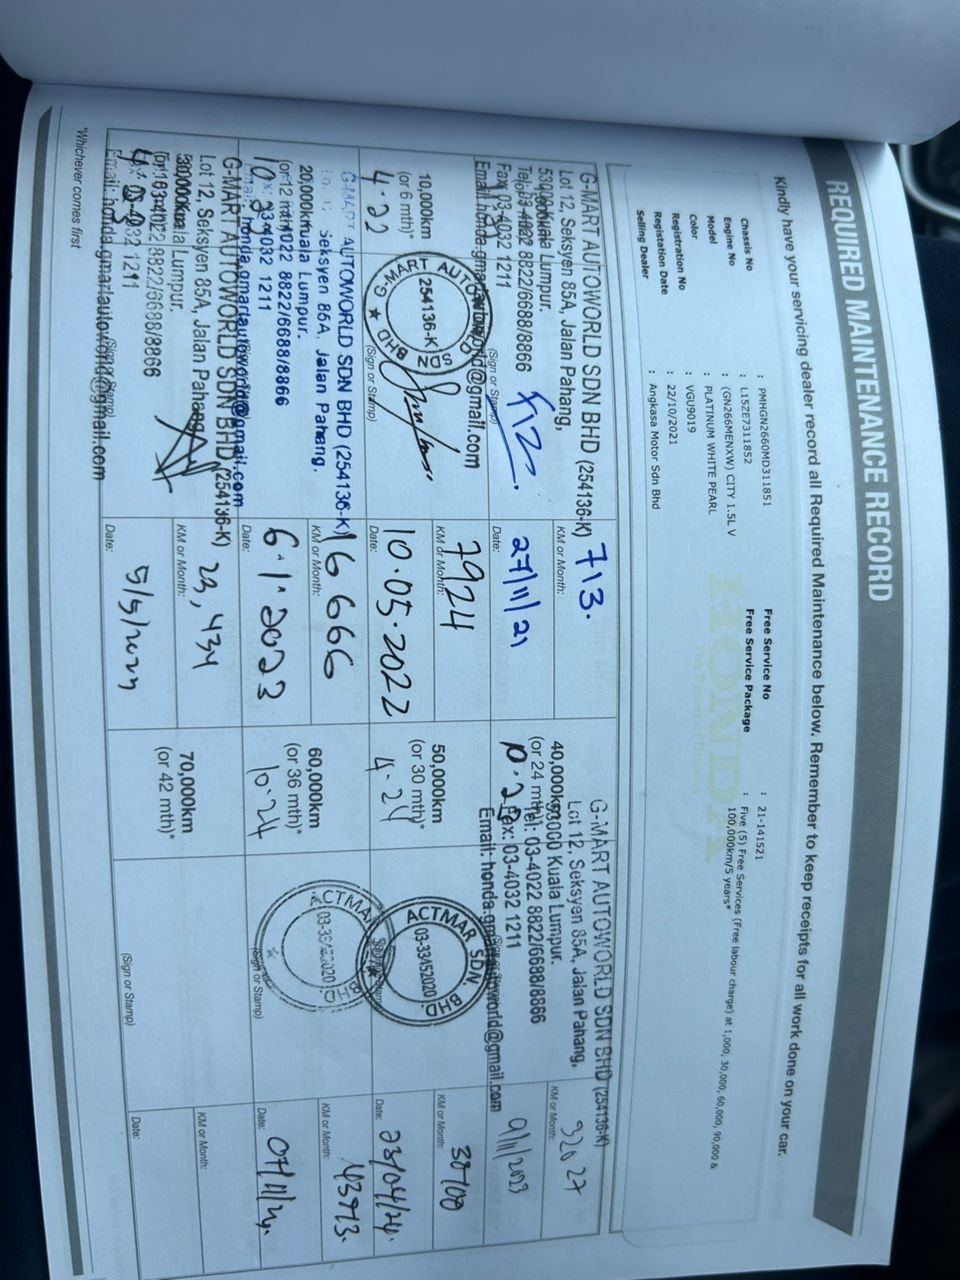 REQUIRED MAINTENANCE RECORD
Kindly have your servicing dealer record all Required Maintenance below. Remember to keep receipts for all work done on your car.
HONDA
The Power of Dreams
Chassis No : PMHGN2660MD311851
Engine No : L15ZE7311852
Model : (GN266MENXW) CITY 1.5L V
Color : PLATINUM WHITE PEARL
Registration No : VGU9019
Registration Date : 22/10/2021
Selling Dealer : Angkasa Motor Sdn Bhd
Free Service No : 21-141521
Free Service Package : Five (5) Free Services (Free labour charge) at 1,000, 30,000, 60,000, 90,000 &
100,000km/5 years*
G-MART AUTOWORLD SDN BHD (254136-K)
Lot 12, Seksyen 85A, Jalan Pahang,
53000 Kuala Lumpur.
Tel: 03-4022 8822/6688/8866
Fax: 03-4032 1211
Email: honda.gmartautoworld@gmail.com
(Sign or Stamp)
KM or Month:
713.
Date:
27/11/21
10,000km
(or 6 mth)*
4.22
G-MART AUTOWORLD SDN BHD
254136-K
(Sign or Stamp)
KM or Month:
7924
10.05.2022
G-MART AUTOWORLD SDN BHD (254136-K)
Seksyen 85A, Jalan Pahang,
Kuala Lumpur.
20,000km
(or 12 mth)*
4022 8822/6688/8866
4032 1211
honda.gmartautoworld@gmail.com
KM or Month:
16666
Date:
6.1.2023
G-MART AUTOWORLD SDN BHD (254136-K)
Lot 12, Seksyen 85A, Jalan Pahang,
30,000km
Kuala Lumpur.
8822/6688/8866
1211
Email: honda.gmartautoworld@gmail.com
(Sign or Stamp)
KM or Month:
23,434
Date:
5/5/2023
G-MART AUTOWORLD SDN BHD (254136-K)
Lot 12, Seksyen 85A, Jalan Pahang,
40,000km
53000 Kuala Lumpur.
(or 24 mth)*
Tel: 03-4022 8822/6688/8866
Fax: 03-4032 1211
Email: honda.gmartautoworld@gmail.com
KM or Month:
32027
9/11/2023
50,000km
(or 30 mth)*
4.24
ACTMAR SDN. BHD.
03-33452020
KM or Month:
38700
Date:
23/04/24.
60,000km
(or 36 mth)*
10.24
ACTMAR
BHD
(Sign or Stamp)
KM or Month:
43973.
Date:
07/11/24.
70,000km
(or 42 mth)*
(Sign or Stamp)
KM or Month:
Date:
*Whichever comes first